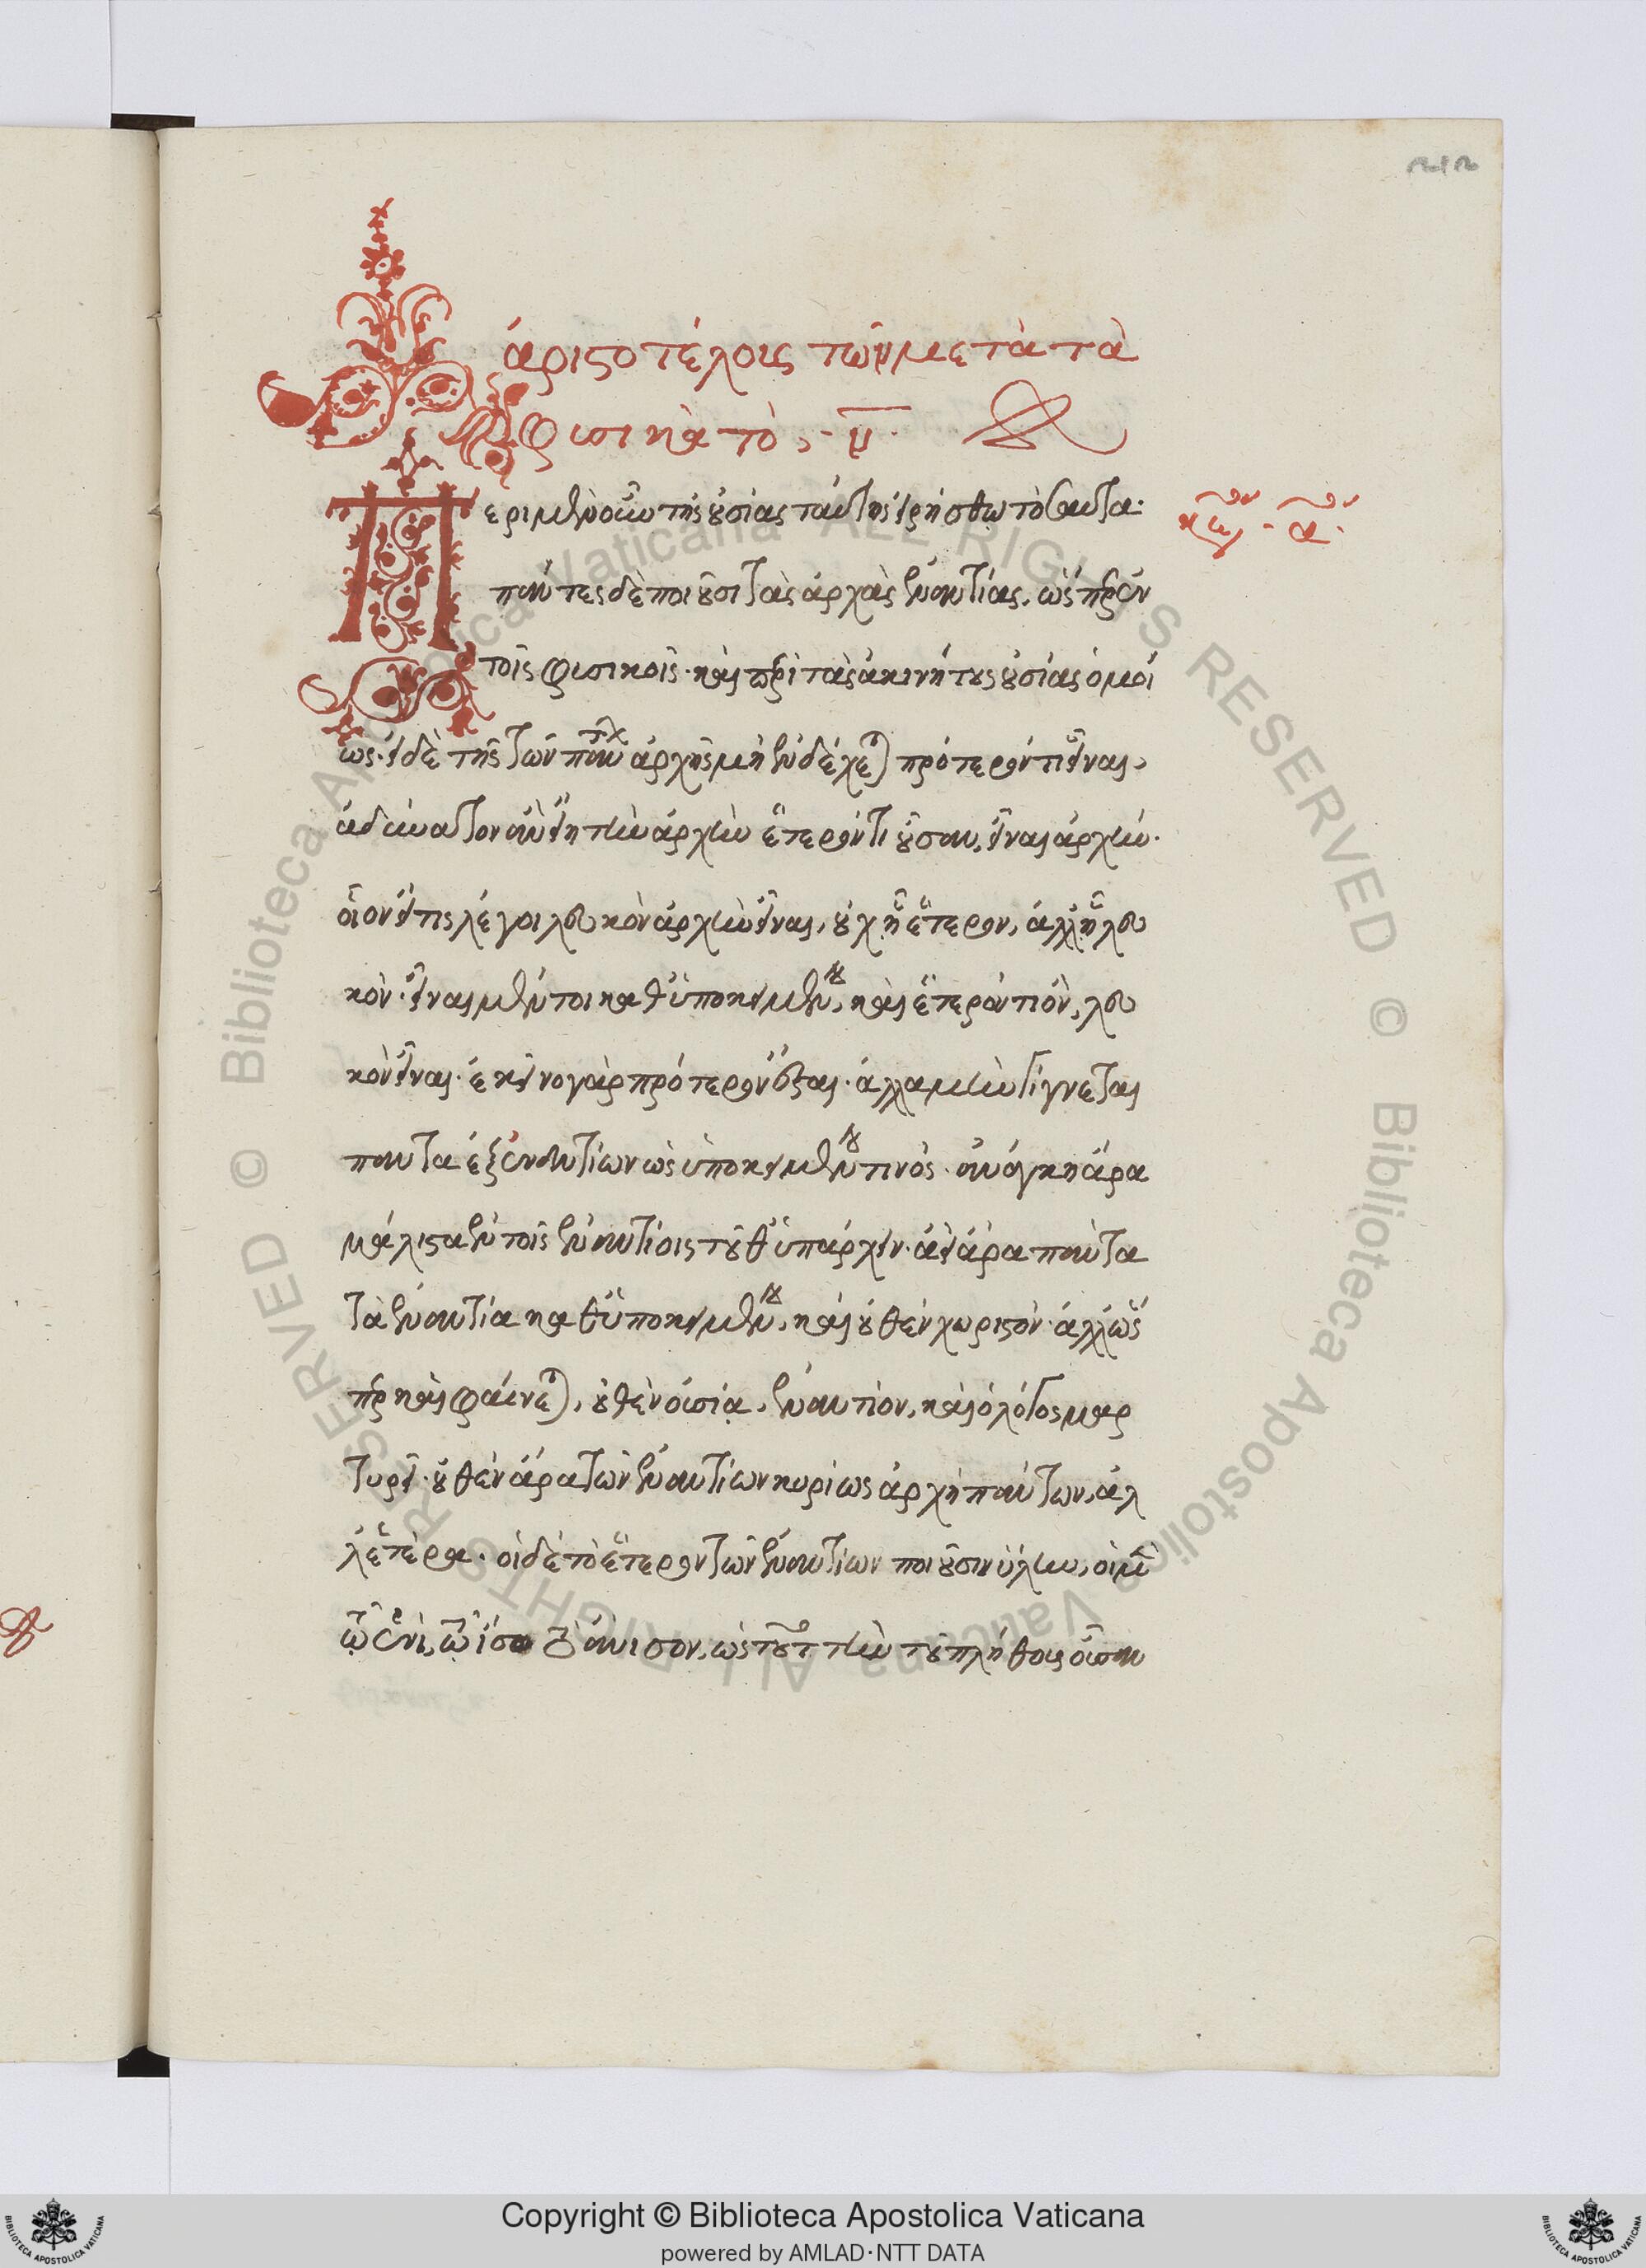 ἀριστοτέλους τῶν μετὰ τὰ
φυσικὰ τὸ, - ν̅.
Περὶ μὲν οὖν τῆς οὐσίας ταύτης εἰρήσθω τοσαῦτα·
κεφ - α.
πάντες δὲ ποιοῦσι τὰς ἀρχὰς ἐναντίας. ὥσπερ ἐν
τοῖς φυσικοῖς· καὶ περὶ τὰς ἀκινήτους οὐσίας ὁμοί
ως· εἰ δὲ τῆς τῶν πάντων ἀρχῆς μὴ ἐνδέχεται πρότερόν τι εἶναι,
ἀδύνατον ἂν εἴη τὴν ἀρχὴν ἕτερόν τι οὖσαν, εἶναι ἀρχήν·
οἷον εἴ τις λέγοι λευκὸν ἀρχὴν εἶναι, οὐχ ᾗ ἕτερον, ἀλλ' ᾗ λευ
κόν· εἶναι μέντοι καθ' ὑποκειμένου, καὶ ἕτερόν τι ὂν, λευ
κὸν εἶναι· ἐκεῖνο γὰρ πρότερον ἔσται· ἀλλὰ μὴν γίγνεται
πάντα ἐξ ἐναντίων ὡς ὑποκειμένου τινός· ἀνάγκη ἄρα
μάλιστα ἐν τοῖς ἐναντίοις τοῦθ' ὑπάρχειν· ἀεὶ ἄρα πάντα
τὰ ἐναντία καθ' ὑποκειμένου, καὶ οὐθὲν χωριστόν· ἀλλ' ὥς
περ καὶ φαίνεται, οὐθὲν οὐσίᾳ ἐναντίον, καὶ ὁ λόγος μαρ
τυρεῖ· οὐθὲν ἄρα τῶν ἐναντίων κυρίως ἀρχὴ πάντων, ἀλ
λ' ἑτέρα· οἱ δὲ τὸ ἕτερον τῶν ἐναντίων ποιοῦσιν ὕλην, οἱ μὲν
τῷ ἑνὶ, τῷ ἴσῳ τὸ ἄνισον, ὡς τοῦτο τὴν τοῦ πλήθους οὖσαν
Copyright © Biblioteca Apostolica Vaticana
powered by AMLAD·NTT DATA